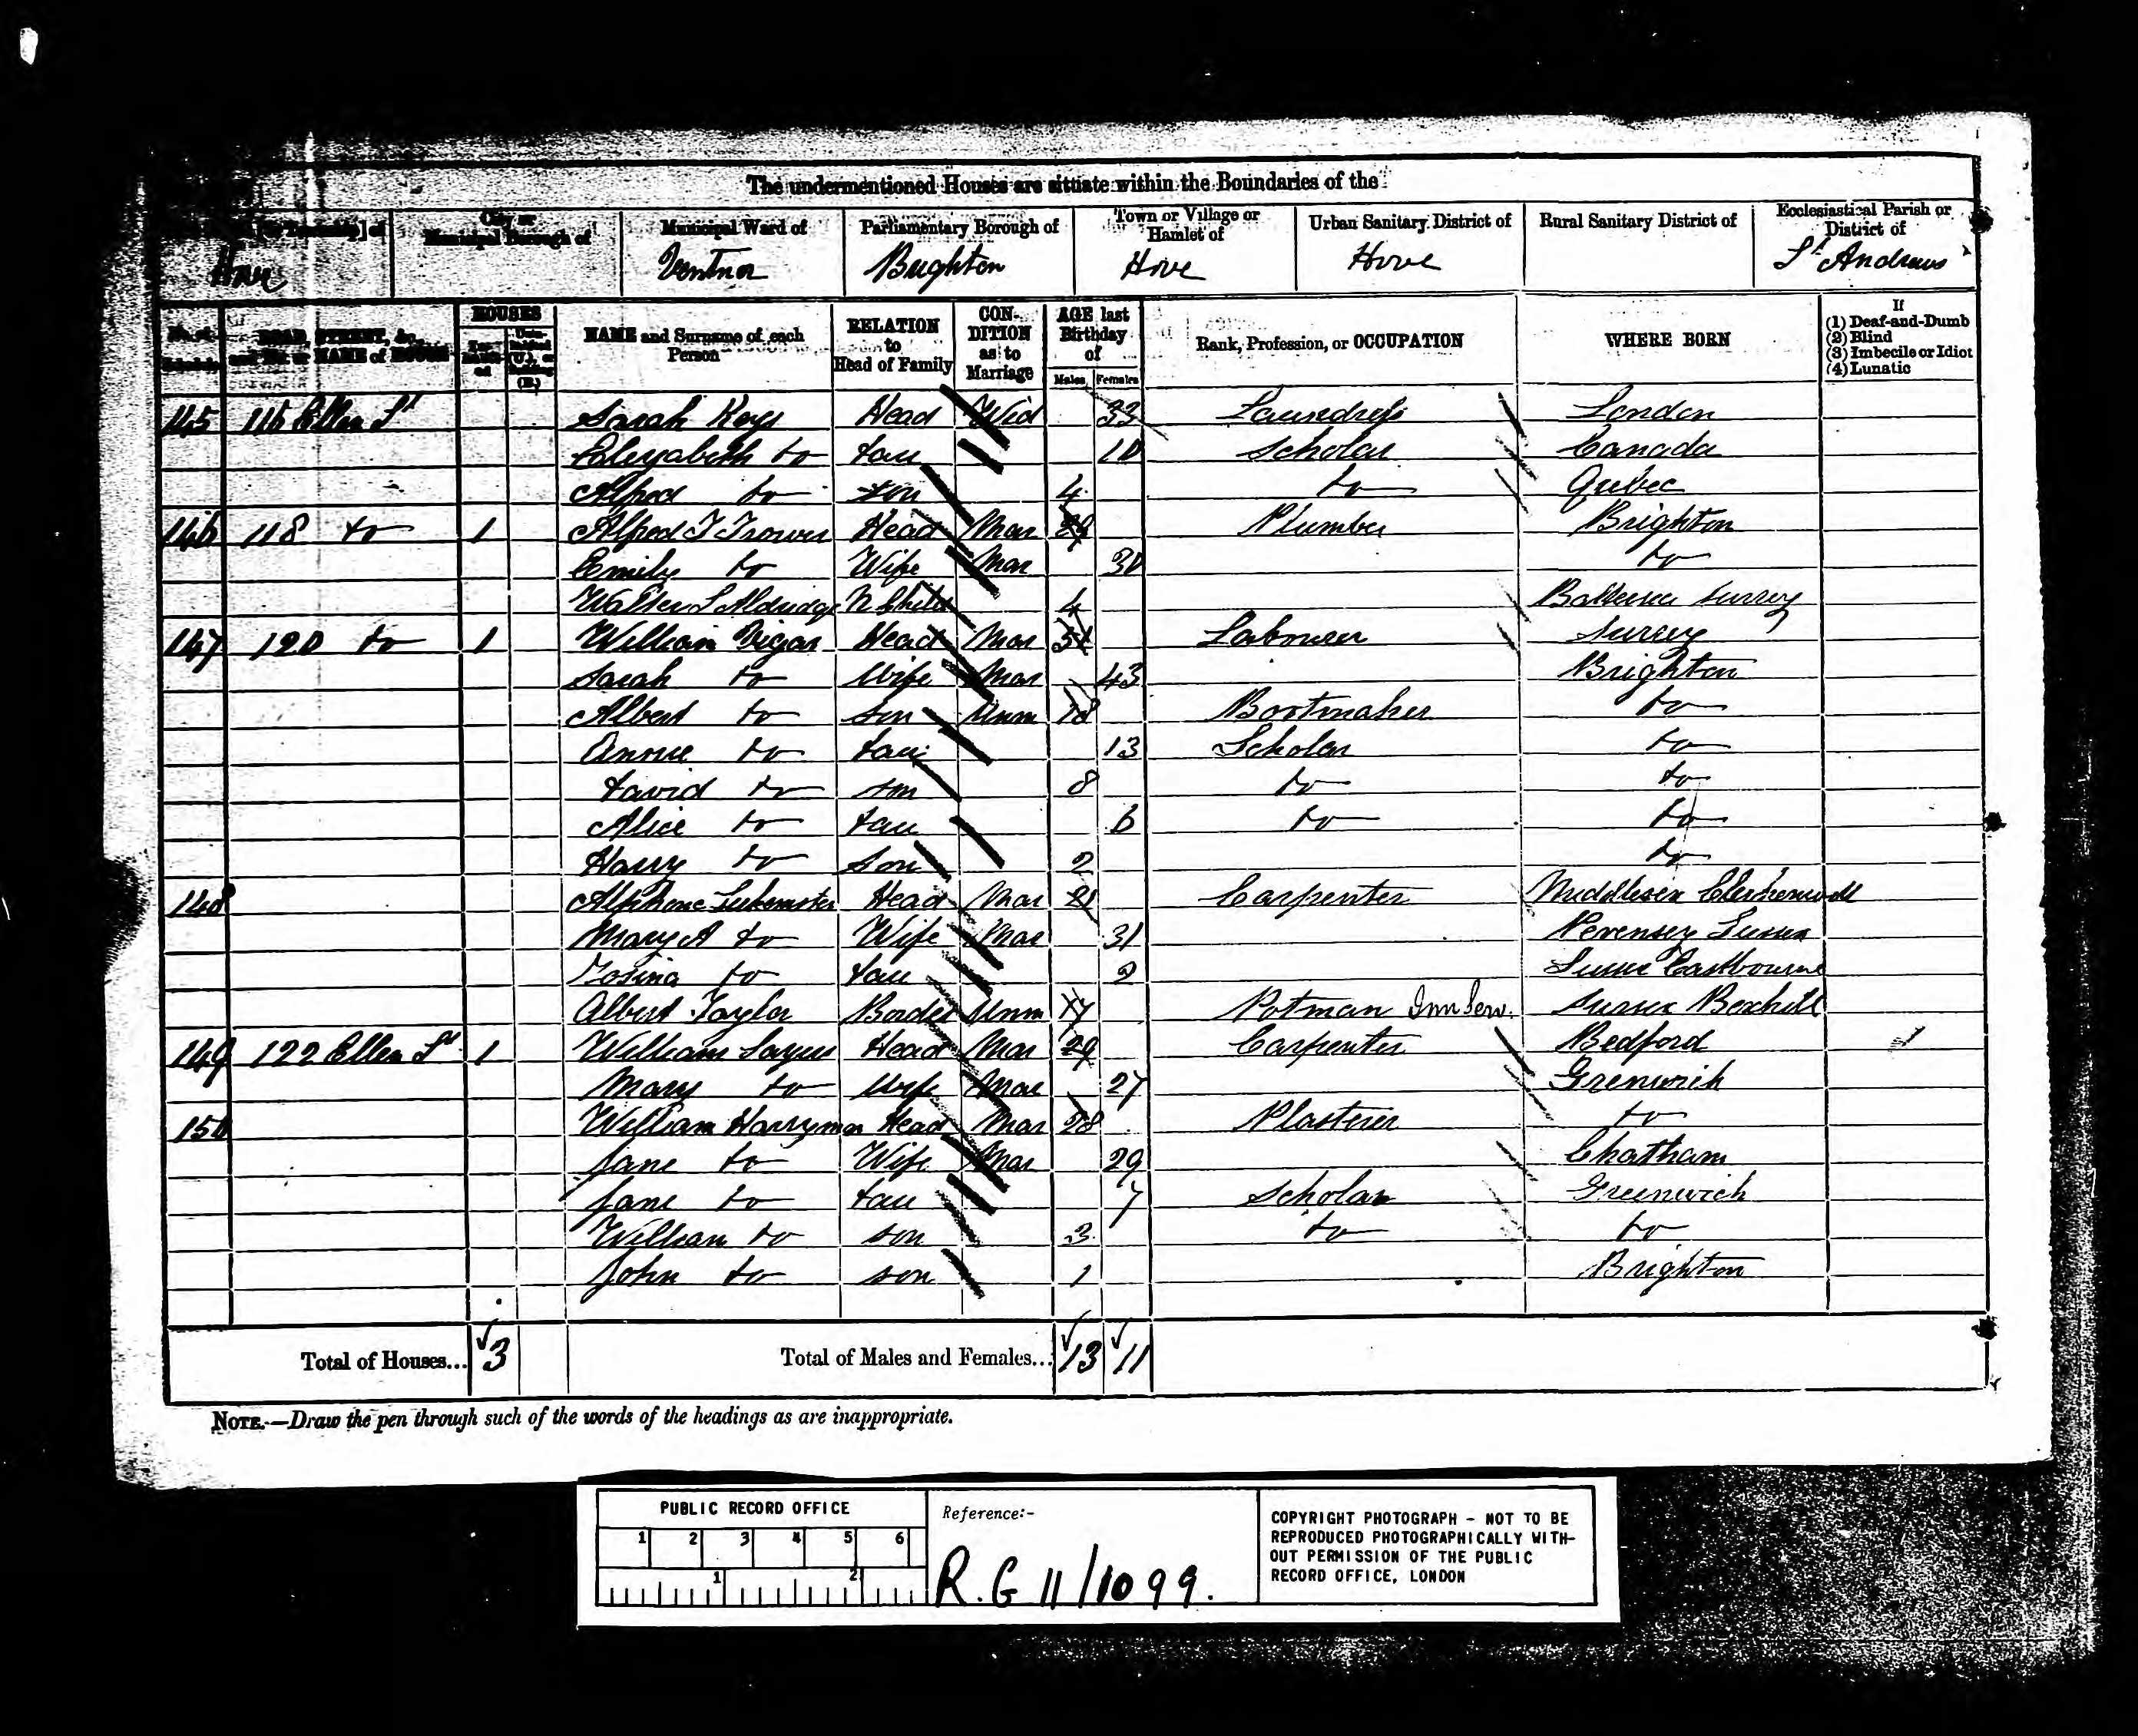 The undermentioned Houses are situate within the Boundaries of the
[or Township] of | City or Municipal Borough of | Municipal Ward of | Parliamentary Borough of | Town or Village or Hamlet of | Urban Sanitary District of | Rural Sanitary District of | Ecclesiastical Parish or District of
Hove | Ventnor | Brighton | Hove | Hove | St Andrews
No. of Schedule | ROAD, STREET, &c., and No. or NAME of HOUSE | HOUSES | NAME and Surname of each Person | RELATION to Head of Family | CONDITION as to Marriage | AGE last Birthday of | Males | Females | Rank, Profession, or OCCUPATION | WHERE BORN | If (1) Deaf-and-Dumb (2) Blind (3) Imbecile or Idiot (4) Lunatic
145 116 Ellen St Sarah Keys Head Wid 33 Laundress London
Elizabeth do dau 10 Scholar Canada
Alfred do son 4 do Qubec
146 118 do 1 Alfred T Trower Head Mar Plumber Brighton
Emily do Wife Mar 30 do
Walter S Aldridge N Child 4 Surrey
147 120 do 1 William Head Mar Labourer Surrey
Sarah do Wife Mar 43 Brighton
Albert do son Unm 18 Bootmaker do
Annie do dau 13 Scholar do
David do son 8 do do
Alice do dau 6 do do
Harry do Son 2 do
148 Head Mar Carpenter Middlesex Clerkenwell
Mary A do Wife Mar 31 Pevensey Sussex
do dau 2 Sussex Eastbourne
Albert Taylor Border Unm 17 Potman Inn Serv. Sussex Bexhill
149 122 Ellen St 1 William Head Mar 29 Carpenter Bedford
Mary do wife Mar 27 Grenwich
150 William Harryman Head Mar 28 Plasterer do
Jane do Wife Mar 29 Chatham
Jane do dau 7 Scholar Greenwich
William do son 3 do do
John do son 1 Brighton
Total of Houses... 3 Total of Males and Females... 13 11
NOTE.—Draw the pen through such of the words of the headings as are inappropriate.
PUBLIC RECORD OFFICE
1 2 3 4 5 6
1 2
Reference:-
R.G 11/1099.
COPYRIGHT PHOTOGRAPH - NOT TO BE
REPRODUCED PHOTOGRAPHICALLY WITH-
OUT PERMISSION OF THE PUBLIC
RECORD OFFICE, LONDON